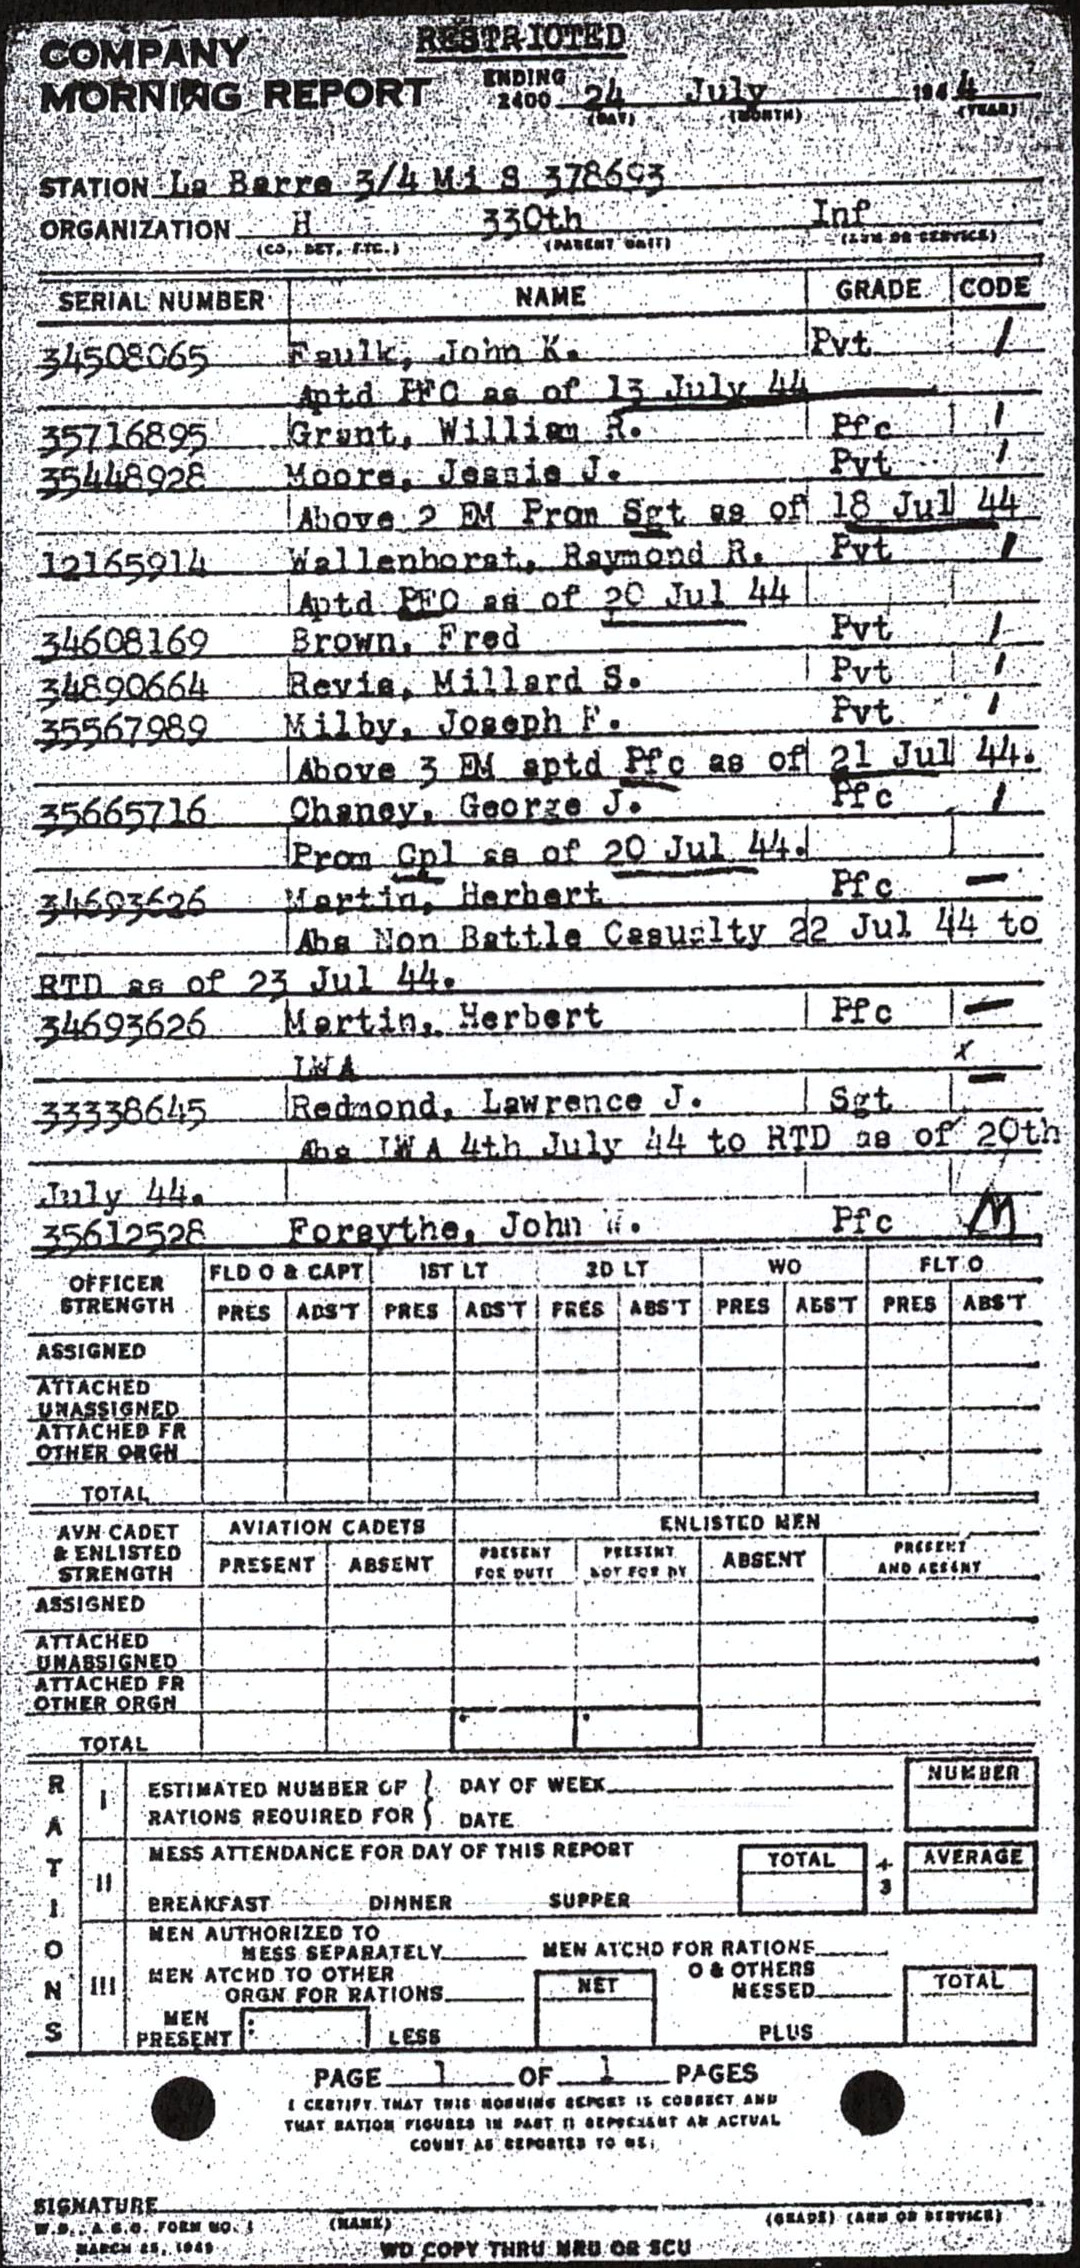 RESTRICTED
COMPANY
MORNING REPORT ENDING 2400 24 July 1944
(DAY) (MONTH) (YEAR)
STATION La Barre 3/4 Mi S 378693
ORGANIZATION H 330th Inf
(CO, DET, ETC.) (PARENT UNIT) (ARM OR SERVICE)
SERIAL NUMBER NAME GRADE CODE
34508065 Faulk, John K. Pvt /
Aptd PFC as of 13 July 44
35716895 Grant, William R. Pfc /
35448928 Moore, Jessie J. Pvt /
Above 2 EM Prom Sgt as of 18 Jul 44
12165914 Wallenhorst, Raymond R. Pvt /
Aptd PFC as of 20 Jul 44
34608169 Brown, Fred Pvt /
34890664 Revis, Millard S. Pvt /
35567989 Milby, Joseph F. Pvt /
Above 3 EM aptd Pfc as of 21 Jul 44.
35665716 Chaney, George J. Pfc /
Prom Cpl as of 20 Jul 44.
34693626 Martin, Herbert Pfc —
Abs Non Battle Casualty 22 Jul 44 to
RTD as of 23 Jul 44.
34693626 Martin, Herbert Pfc —
LWA x
33338645 Redmond, Lawrence J. Sgt —
Abs LWA 4th July 44 to RTD as of 20th
July 44.
35612528 Forsythe, John W. Pfc M
OFFICER STRENGTH FLD O & CAPT 1ST LT 2D LT WO FLT O
PRES ABS'T PRES ABS'T PRES ABS'T PRES ABS'T PRES ABS'T
ASSIGNED
ATTACHED
UNASSIGNED
ATTACHED FR
OTHER ORGN
TOTAL
AVN CADET & ENLISTED STRENGTH AVIATION CADETS ENLISTED MEN
PRESENT ABSENT PRESENT FOR DUTY PRESENT NOT FOR DY ABSENT PRESENT AND ABSENT
ASSIGNED
ATTACHED
UNASSIGNED
ATTACHED FR
OTHER ORGN
TOTAL
RATIONS
I ESTIMATED NUMBER OF RATIONS REQUIRED FOR DAY OF WEEK NUMBER
DATE
II MESS ATTENDANCE FOR DAY OF THIS REPORT TOTAL ÷ 3 AVERAGE
BREAKFAST DINNER SUPPER
III MEN AUTHORIZED TO
MESS SEPARATELY MEN ATCHD FOR RATIONS
MEN ATCHD TO OTHER ORGN FOR RATIONS NET O & OTHERS MESSED TOTAL
MEN PRESENT LESS PLUS
PAGE 1 OF 1 PAGES
I CERTIFY THAT THIS MORNING REPORT IS CORRECT AND
THAT RATION FIGURES IN PART II REPRESENT AN ACTUAL
COUNT AS REPORTED TO ME:
SIGNATURE
(NAME) (GRADE) (ARM OR SERVICE)
W.D., A.G.O. FORM NO. 1
MARCH 25, 1943
WD COPY THRU MRU OR SCU